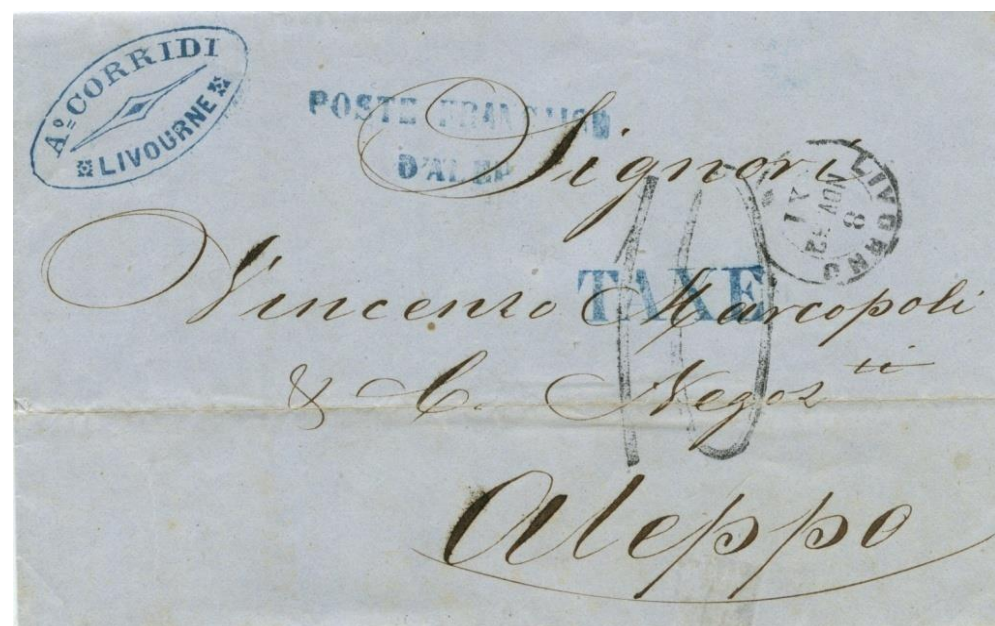 Aº CORRIDI
LIVOURNE
POSTE FRANÇAISE
D'ALEP
LIVORNO
8
NOV
XI
Signori
TAXE
10
Vincenzo Marcopoli
& C. Negoz ti
Aleppo